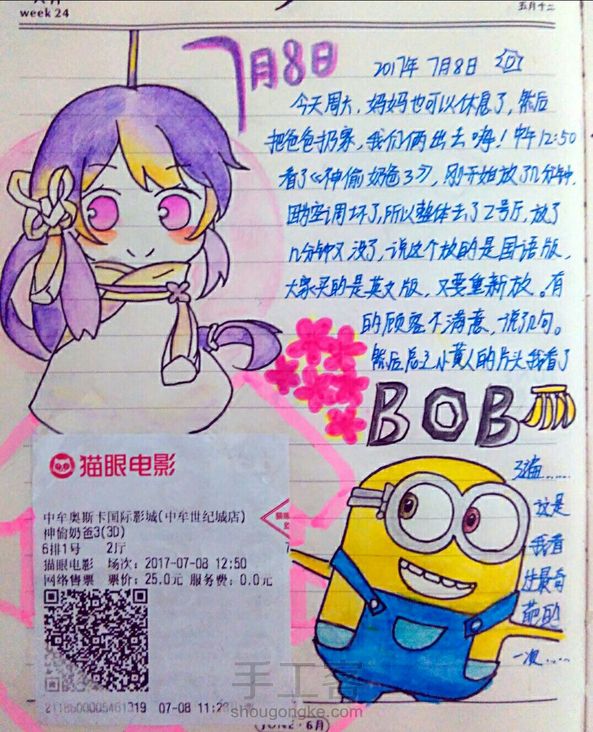 week 24
五月十二
7月8日
2017年 7月8日
今天周六,妈妈也可以休息了,然后
把爸爸扔寡,我们俩出去嗨!中午12:50
看了《神偷奶爸3》,刚开始放了几分钟,
因空调坏了,所以整体去了2号厅,放了
几分钟又没了,说这个放的是国语版,
大家买的是英文版,又要重新放。有
的顾客不满意,说了几句。
然后后三小黄人的片头我看了
BOB
3遍......
这是
我看
过最奇
葩的
一次......
猫眼电影
中牟奥斯卡国际影城(中牟世纪城店)
神偷奶爸3(3D)
6排1号 2厅
猫眼电影 场次: 2017-07-08 12:50
网络售票 票价: 25.0元 服务费: 0.0元
07-08 11:28
手工客
shougongke.com
JUNE·6月